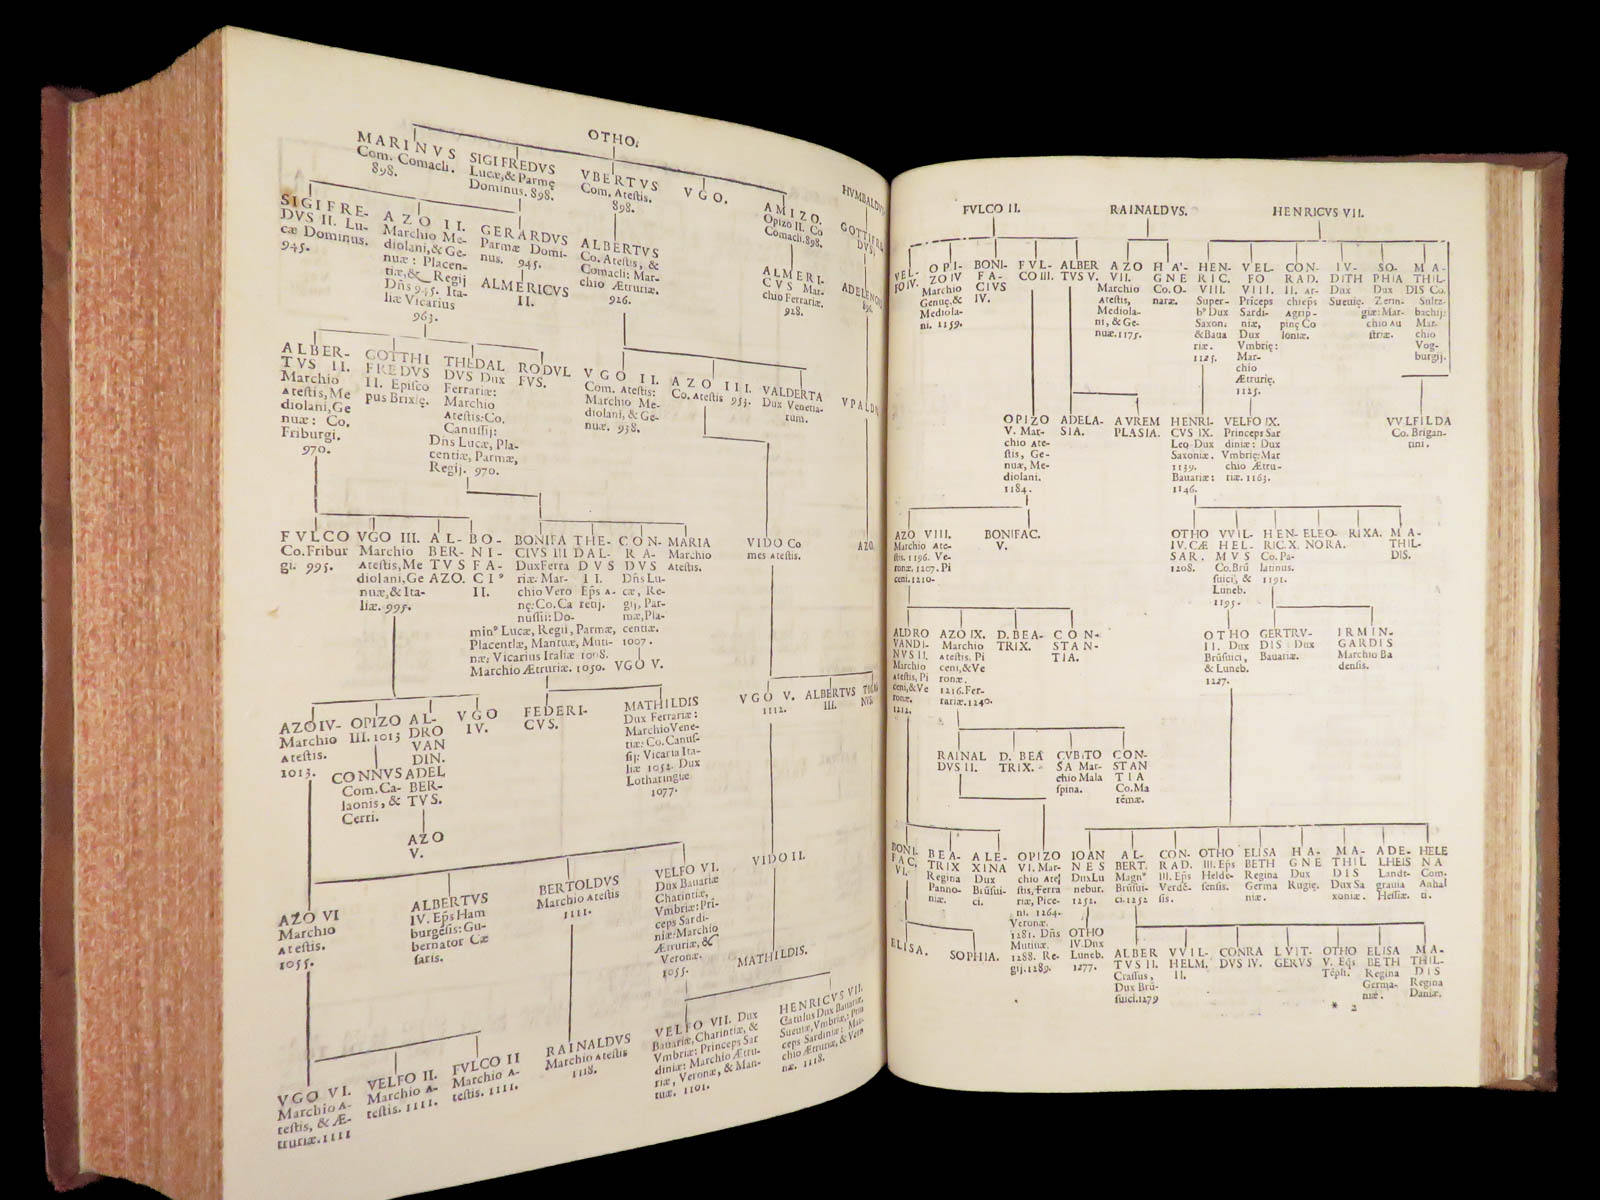 OTHO.
MARINVS
Com. Comacli.
898.
SIGIFREDVS
Lucæ, & Parmę
Dominus. 898.
VBERTVS
Com. Atestis.
898.
VGO.
AMIZO.
Opizo II. Co
Comacli. 898.
SIGIFRE-
DVS II. Lu-
cæ Dominus.
945.
AZO II.
Marchio Me-
diolani, & Ge-
nuæ: Placen-
tiæ, & Regij
Dñs 945. Ita-
liæ Vicarius
963.
GERARDVS
Parmæ Domi-
nus. 945.
ALMERICVS
II.
ALBERTVS
Co. Atestis, &
Comacli: Mar-
chio Ætruriæ.
926.
ALMERI-
CVS Mar-
chio Ferrariæ.
928.
ALBER-
TVS II.
Marchio
Atestis, Me
diolani, Ge
nuæ: Co.
Friburgi.
970.
GOTTHI
FREDVS
II. Episco
pus Brixię.
THEDAL
DVS Dux
Ferrariæ:
Marchio
Atestis: Co.
Canussij:
Dñs Lucæ, Pla-
centiæ, Parmæ,
Regij. 970.
RODVL
FVS.
VGO II.
Com. Atestis:
Marchio Me-
diolani, & Ge-
nuæ. 938.
AZO III.
Co. Atestis 953.
VALDERTA
Dux Venetia-
rum.
FVLCO
Co. Fribur
gi. 995.
VGO III.
Marchio
Atestis, Me
diolani, Ge
nuæ, & Ita-
liæ. 995.
AL-
BER-
TVS
AZO.
BO-
NI-
FA-
CIº
II.
BONIFA
CIVS III
Dux Ferra
riæ: Mar-
chio Vero
nę: Co. Ca
nussii: Do-
minº Lucæ, Regii, Parmæ,
Placentiæ, Mantuæ, Muti-
næ: Vicarius Italiæ 1008.
Marchio Ætruriæ. 1050.
THE-
DAL-
DVS
II.
Epṡ A-
retij.
CON-
RA-
DVS
Dñs Lu-
cæ, Re-
gij, Par-
mæ, Pla-
centiæ.
1007.
VGO V.
MARIA
Marchio
Atestis.
VIDO Co
mes Atestis.
AZO.
AZO IV.
Marchio
Atestis.
1013.
OPIZO
III. 1013
CONNVS
Com. Ca-
laonis, &
Cerri.
AL-
DRO
VAN
DIN.
ADEL
BER-
TVS.
AZO
V.
VGO
IV.
FEDERI-
CVS.
MATHILDIS
Dux Ferrariæ:
Marchio Vene-
tiæ: Co. Canus-
sij: Vicaria Ita-
liæ 1052. Dux
Lotharingiæ
1077.
VGO V.
1112.
ALBERTVS
III.
AZO VI
Marchio
Atestis.
1055.
ALBERTVS
IV. Epṡ Ham
burgēsis: Gu-
bernator Cæ
saris.
BERTOLDVS
Marchio Atestis
1111.
VELFO VI.
Dux Bauariæ
Charintiæ,
Vmbriæ: Pri-
ceps Sardi-
niæ: Marchio
Ætruriæ, &
Veronæ.
1055.
VIDO II.
MATHILDIS.
VGO VI.
Marchio A-
testis, & Æ-
truriæ. 1111
VELFO II.
Marchio A-
testis. 1111.
FVLCO II
Marchio A-
testis. 1111.
RAINALDVS
Marchio Atestis
1118.
VELFO VII. Dux
Bauariæ, Charintiæ, &
Vmbriæ: Princeps Sar
diniæ: Marchio Ætru-
riæ, Veronæ, & Man-
tuæ. 1101.
HENRICVS VII.
Catulus Dux Bauariæ,
Sueuiæ, Vmbriæ,: Prin
ceps Sardiniæ: Mar-
chio Ætruriæ, & Vero
næ. 1118.
FVLCO II.
RAINALDVS.
HENRICVS VII.
VEL-
FO IV.
OPI-
ZO IV
Marchio
Genuę, &
Mediola-
ni. 1159.
BONI-
FA-
CIVS
IV.
FVL-
CO III.
ALBER
TVS V.
AZO
VII.
Marchio
Atestis,
Mediola-
ni, & Ge-
nuæ. 1175.
HA-
GNE
Co. O-
naræ.
HEN-
RIC.
VIII.
Super-
bº Dux
Saxon:
& Baua
riæ.
1125.
VEL-
FO
VIII.
Prīceps
Sardi-
niæ,
Dux
Vmbrię:
Mar-
chio
Ætrurię.
1125.
CON-
RAD.
II. Ar-
chiepṡ
Agrip-
pinę Co
loniæ.
IV-
DITH
Dux
Sueuię.
SO-
PHIA
Dux
Zerin-
giæ: Mar-
chio Au
striæ.
MA-
THIL-
DIS Co.
Sultz-
bachij:
Mar-
chio
Vog-
burgij.
OPIZO
V. Mar-
chio Ate-
stis, Ge-
nuæ, Me-
diolani.
1184.
ADELA-
SIA.
AVREM
PLASIA.
HENRI-
CVS IX.
Leo Dux
Saxoniæ.
1139.
Bauariæ:
1146.
VELFO IX.
Princeps Sar
diniæ: Dux
Vmbrię: Mar
chio Ætru-
riæ. 1163.
VVLFILDA
Co. Brigan-
tini.
AZO VIII.
Marchio Ate-
stis. 1196. Ve-
ronæ. 1207. Pi
ceni. 1210.
BONIFAC.
V.
OTHO
IV. CÆ
SAR.
1208.
VVIL-
HEL-
MVS
Co. Brū
suici, &
Luneb.
1195.
HEN-
RIC. X.
Co. Pa-
latinus.
1191.
ELEO-
NORA.
RIXA.
MA-
THIL-
DIS.
ALDRO
VANDI-
NVS II.
Marchio
Atestis, Pi
ceni, & Ve
ronæ.
1212.
AZO IX.
Marchio
Atestis. Pi
ceni, & Ve
ronæ.
1216. Fer-
rariæ. 1240.
D. BEA-
TRIX.
CON-
STAN-
TIA.
OTHO
II. Dux
Brūsuici,
& Luneb.
1227.
GERTRV-
DIS: Dux
Bauariæ.
IRMIN-
GARDIS
Marchio Ba
densis.
RAINAL
DVS II.
D. BEA
TRIX.
CVBITO
SA Mar-
chio Mala
spina.
CON-
STAN
TIA
Co. Ma
rēmæ.
BONI-
FAC.
VI.
BEA-
TRIX
Regina
Panno-
niæ.
ALE-
XINA
Dux
Brūsui-
ci.
OPIZO
VI. Mar-
chio Ate
stis, Ferra
riæ, Pice-
ni. 1264.
Veronæ.
1281. Dñs
Mutinæ.
1288. Re-
gij. 1289.
IOAN
NES
Dux Lu
nebur.
1252.
OTHO
IV. Dux
Luneb.
1277.
AL-
BERT.
Magnº
Brūsui-
ci. 1252
CON-
RAD.
III. Epṡ
Verdē-
sis.
OTHO
III. Epṡ
Helde-
sensis.
ELISA
BETH
Regina
Germa
niæ.
HA-
GNE
Dux
Rugię.
MA-
THIL
DIS
Dux Sa
xoniæ.
ADE-
LHEIS
Landt-
grauia
Hessiæ.
HELE
NA
Com.
Anhal
ti.
ELISA.
SOPHIA.
ALBER
TVS II.
Crassus,
Dux Brū-
suici. 1279
VVIL-
HELM.
II.
CONRA
DVS IV.
LVIT-
GERVS
OTHO
V. Eqṡ
Tēpli.
ELISA
BETH
Regina
Germa-
niæ.
MA-
THIL-
DIS
Regina
Daniæ.
* 2